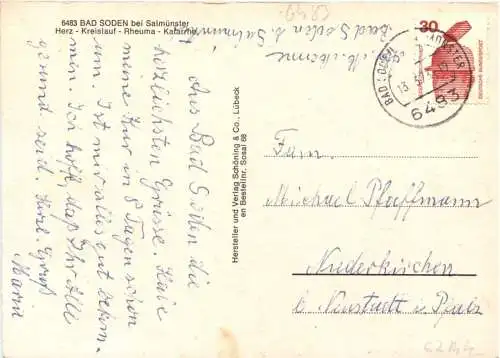 6483 BAD SODEN bei Salmünster
Herz - Kreislauf - Rheuma - Katarrhe
Aus Bad Soden die
herzlichsten Grüsse. Habe
meine Kur in 8 Tagen schon
um. Ist mir alles gut bekom-
min. Ich hoff, das Ihr Alle
gesund seid. Herzl. Gruß
Maria
Hersteller und Verlag Schöning & Co., Lübeck
en Bestellnr. Sosal 68
Bad Soden b. Salmünster
30
DEUTSCHE BUNDESPOST
BAD SODEN
6483
Fam.
Michael Pfaffmann
Niederkirchen
b. Neustadt i. Pfalz